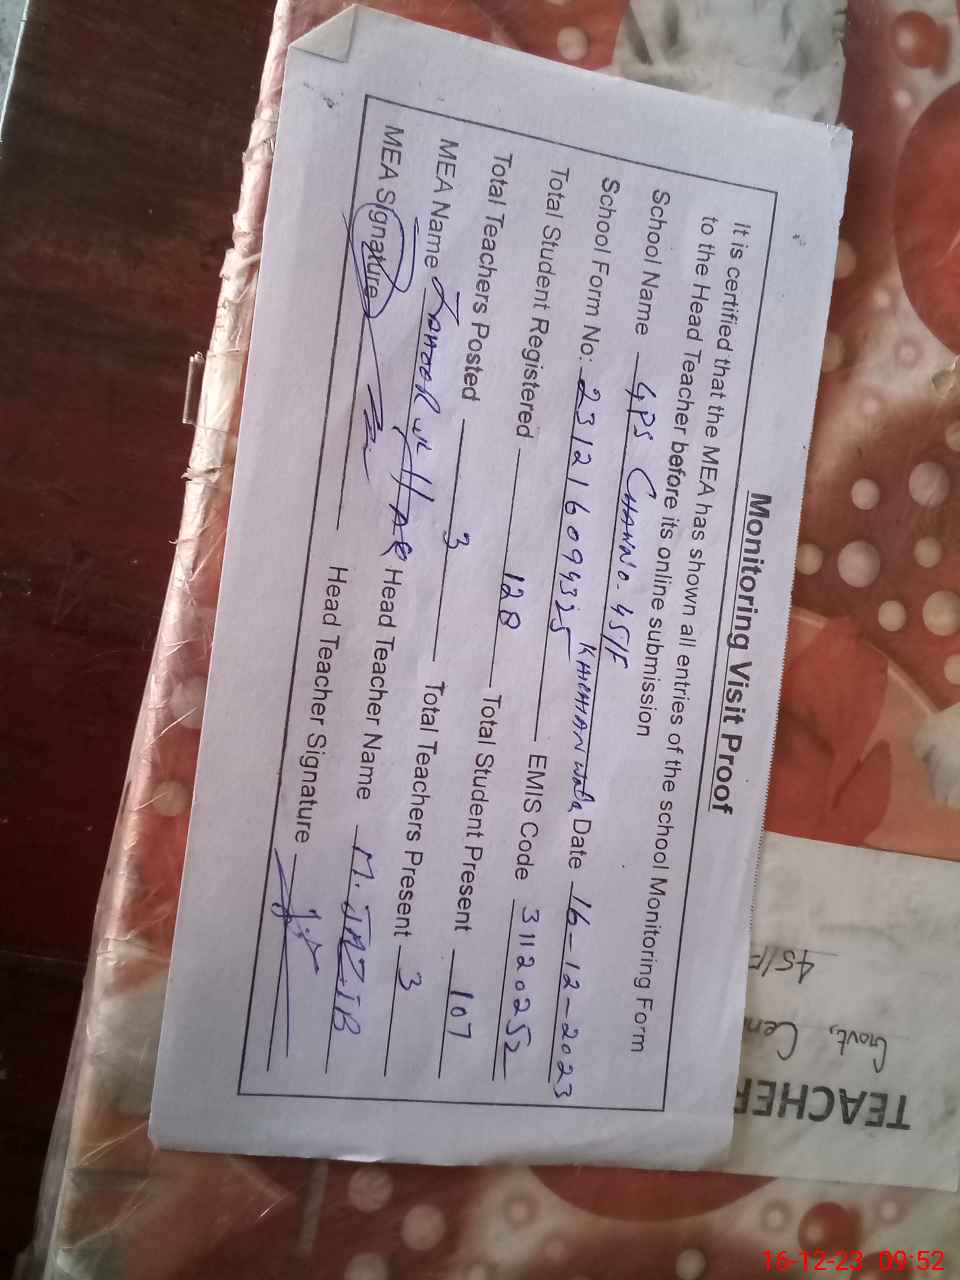 Monitoring Visit Proof
It is certified that the MEA has shown all entries of the school Monitoring Form
to the Head Teacher before its online submission
School Name GPS CHAK NO. 45/F KHICHIANWALA Date 16-12-2023
School Form No: 2312160994325 EMIS Code 31120252
Total Student Registered 128 Total Student Present 107
Total Teachers Posted 3 Total Teachers Present 3
MEA Name HAQ Head Teacher Name M.
MEA Signature Head Teacher Signature
TEACHER
Govt, Cen
45/F
16-12-23 09:52